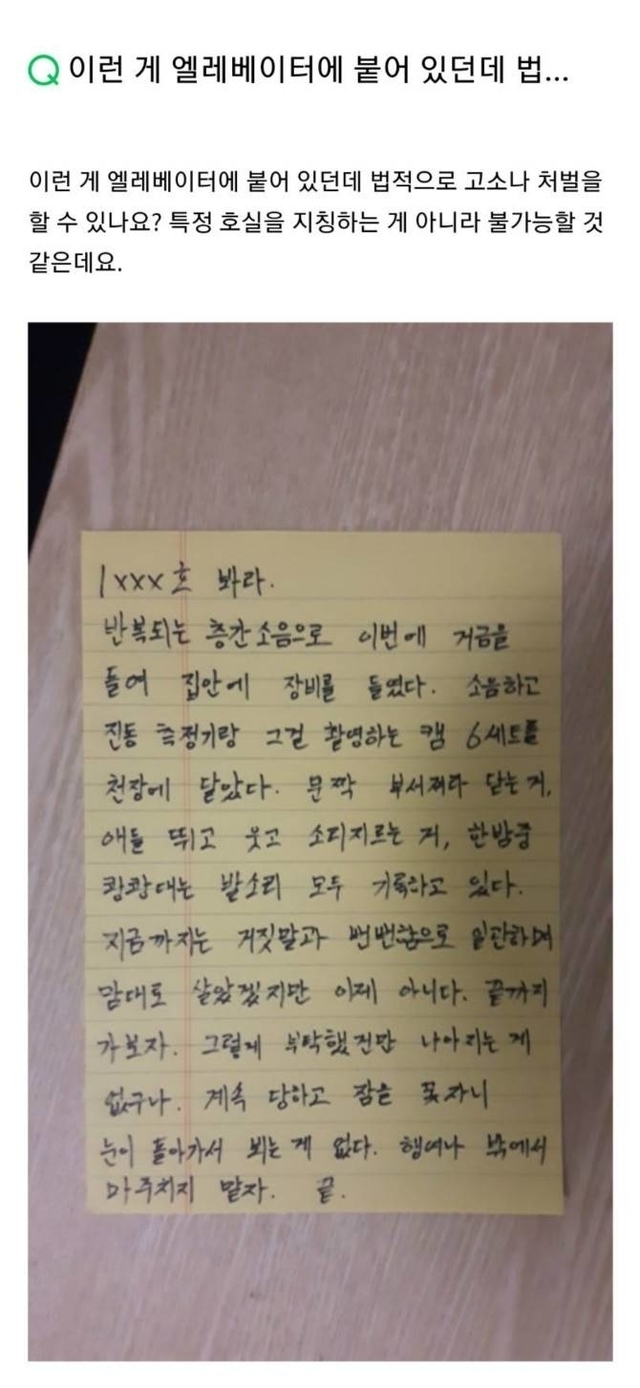 이런 게 엘레베이터에 붙어 있던데 법...
이런 게 엘레베이터에 붙어 있던데 법적으로 고소나 처벌을
할 수 있나요? 특정 호실을 지칭하는 게 아니라 불가능할 것
같은데요.
1xxx호 봐라.
반복되는 층간소음으로 이번에 거금을
들여 집안에 장비를 들였다. 소음하고
진동 측정기랑 그걸 촬영하는 캠 6세트를
천장에 달았다. 문짝 부서져라 닫는 거,
애들 뛰고 웃고 소리지르는 거, 한밤중
쾅쾅대는 발소리 모두 기록하고 있다.
지금까지는 거짓말과 뻔뻔함으로 일관하며
맘대로 살았겠지만 이제 아니다. 끝까지
가보자. 그렇게 부탁했건만 나아지는 게
없구나. 계속 당하고 잠을 못자니
눈이 돌아가서 뵈는 게 없다. 행여나 밖에서
마주치지 말자. 끝.